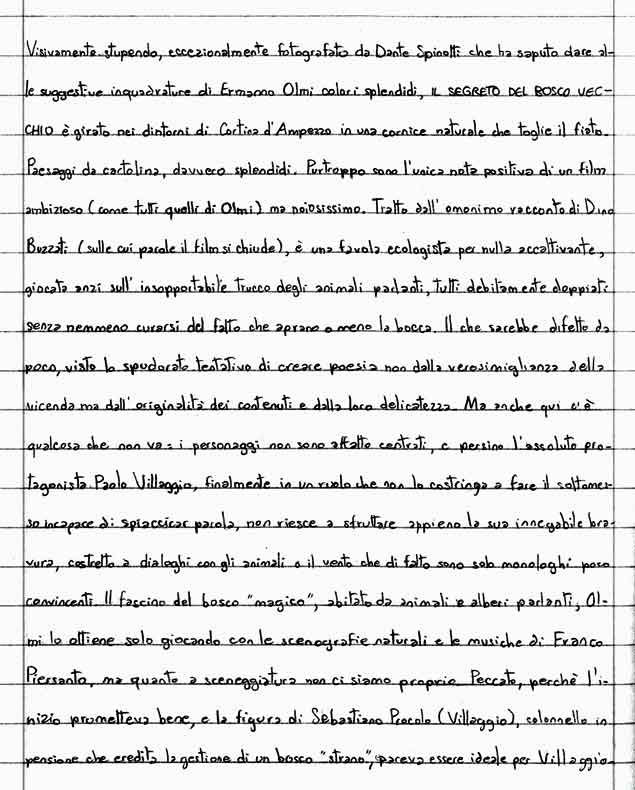 Visivamente stupendo, eccezionalmente fotografato da Dante Spinotti che ha saputo dare al-
le suggestive inquadrature di Ermanno Olmi colori splendidi, IL SEGRETO DEL BOSCO VEC-
CHIO è girato nei dintorni di Cortina d'Ampezzo in una cornice naturale che toglie il fiato.
Paesaggi da cartolina, davvero splendidi. Purtroppo sono l'unica nota positiva di un film
ambizioso (come tutti quelli di Olmi) ma noiosissimo. Tratto dall'omonimo racconto di Dino
Buzzati (sulle cui parole il film si chiude), è una favola ecologista per nulla accattivante,
giocata anzi sull'insopportabile trucco degli animali parlanti, tutti debitamente doppiati
senza nemmeno curarsi del fatto che aprano o meno la bocca. Il che sarebbe difetto da
poco, visto lo spudorato tentativo di creare poesia non dalla verosimiglianza della
vicenda ma dall'originalità dei contenuti e dalla loro delicatezza. Ma anche qui c'è
qualcosa che non va: i personaggi non sono affatto centrati, e persino l'assoluto pro-
tagonista Paolo Villaggio, finalmente in un ruolo che non lo costringa a fare il sottomes-
so incapace di spiaccicar parola, non riesce a sfruttare appieno la sua innegabile bra-
vura, costretto a dialoghi con gli animali o il vento che di fatto sono solo monologhi poco
convincenti. Il fascino del bosco "magico", abitato da animali e alberi parlanti, Ol-
mi lo ottiene solo giocando con le scenografie naturali e le musiche di Franco
Piersanto, ma quanto a sceneggiatura non ci siamo proprio. Peccato, perchè l'i-
nizio prometteva bene, e la figura di Sebastiano Procolo (Villaggio), colonnello in
pensione che eredita la gestione di un bosco "strano", pareva essere ideale per Villaggio.